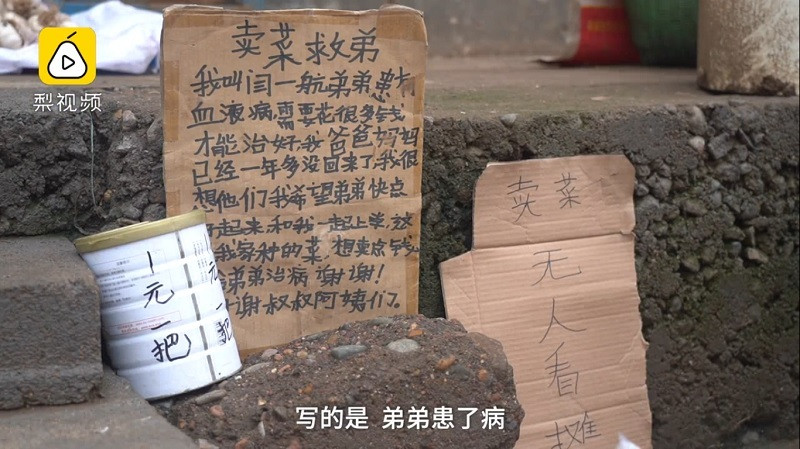 梨视频
卖菜救弟
我叫闫一航弟弟患有
血液病,需要花很多钱
才能治好,我爸爸妈妈
已经一年多没回来了,我很
想他们我希望弟弟快点
好起来和我一起上学,这
我家种的菜,想卖点钱
弟弟治病 谢谢!
谢叔叔阿姨们。
1元一把
元一把
卖菜
无人看摊
写的是 弟弟患了病